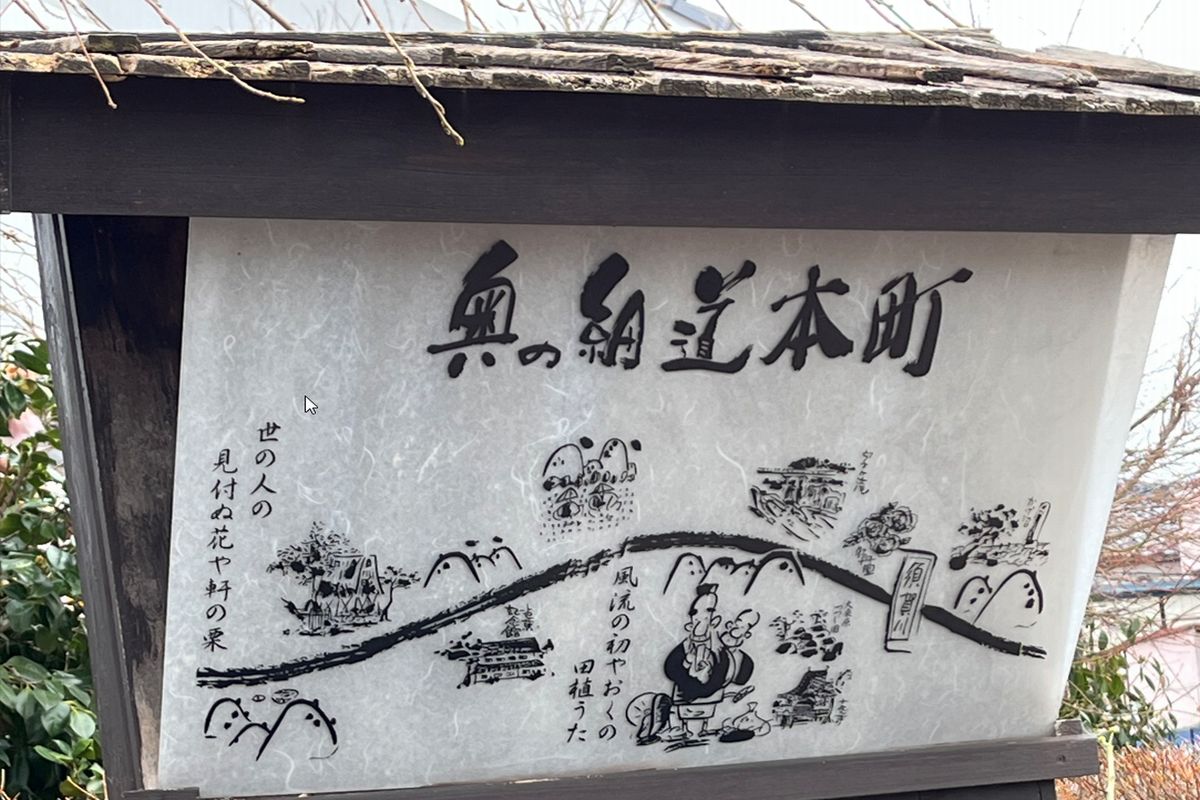 奥の細道本町
世の人の
見付ぬ花や軒の栗
風流の初やおくの
田植うた
須賀川
牡丹園
芭蕉
記念館